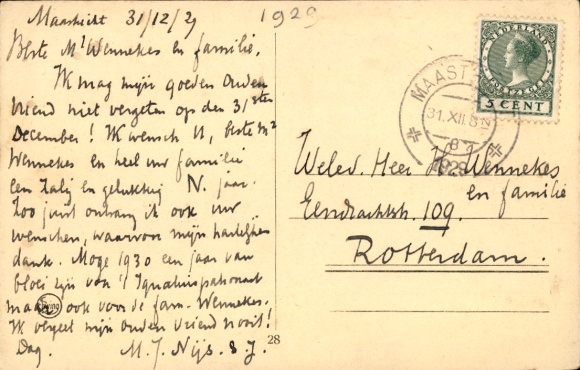 Maastricht 31/12/29
1929
Beste Mr Wennekes en familie.
Ik mag mijn goeden ouden
vriend niet vergeten op den 31sten
December! Ik wensch U, beste Mr
Wennekes en heel uw familie
een zalig en gelukkig N. jaar.
Zoo juist ontvang ik ook uw
wenschen, waarvoor mijn hartelijken
dank. Moge 1930 een jaar van
bloei zijn van 't Ignatiuspatronaat
maar ook voor de fam. Wennekes.
Ik vergeet mijn ouden vriend nooit!
Dag. M. J. Nijs. S. J.
28
NEDERLAND
POSTZEGEL
5 CENT
MAASTRICHT
31.XII.8N
1929
Weled. Heer H. Wennekes
en familie
Eendrachtstr. 109.
Rotterdam.